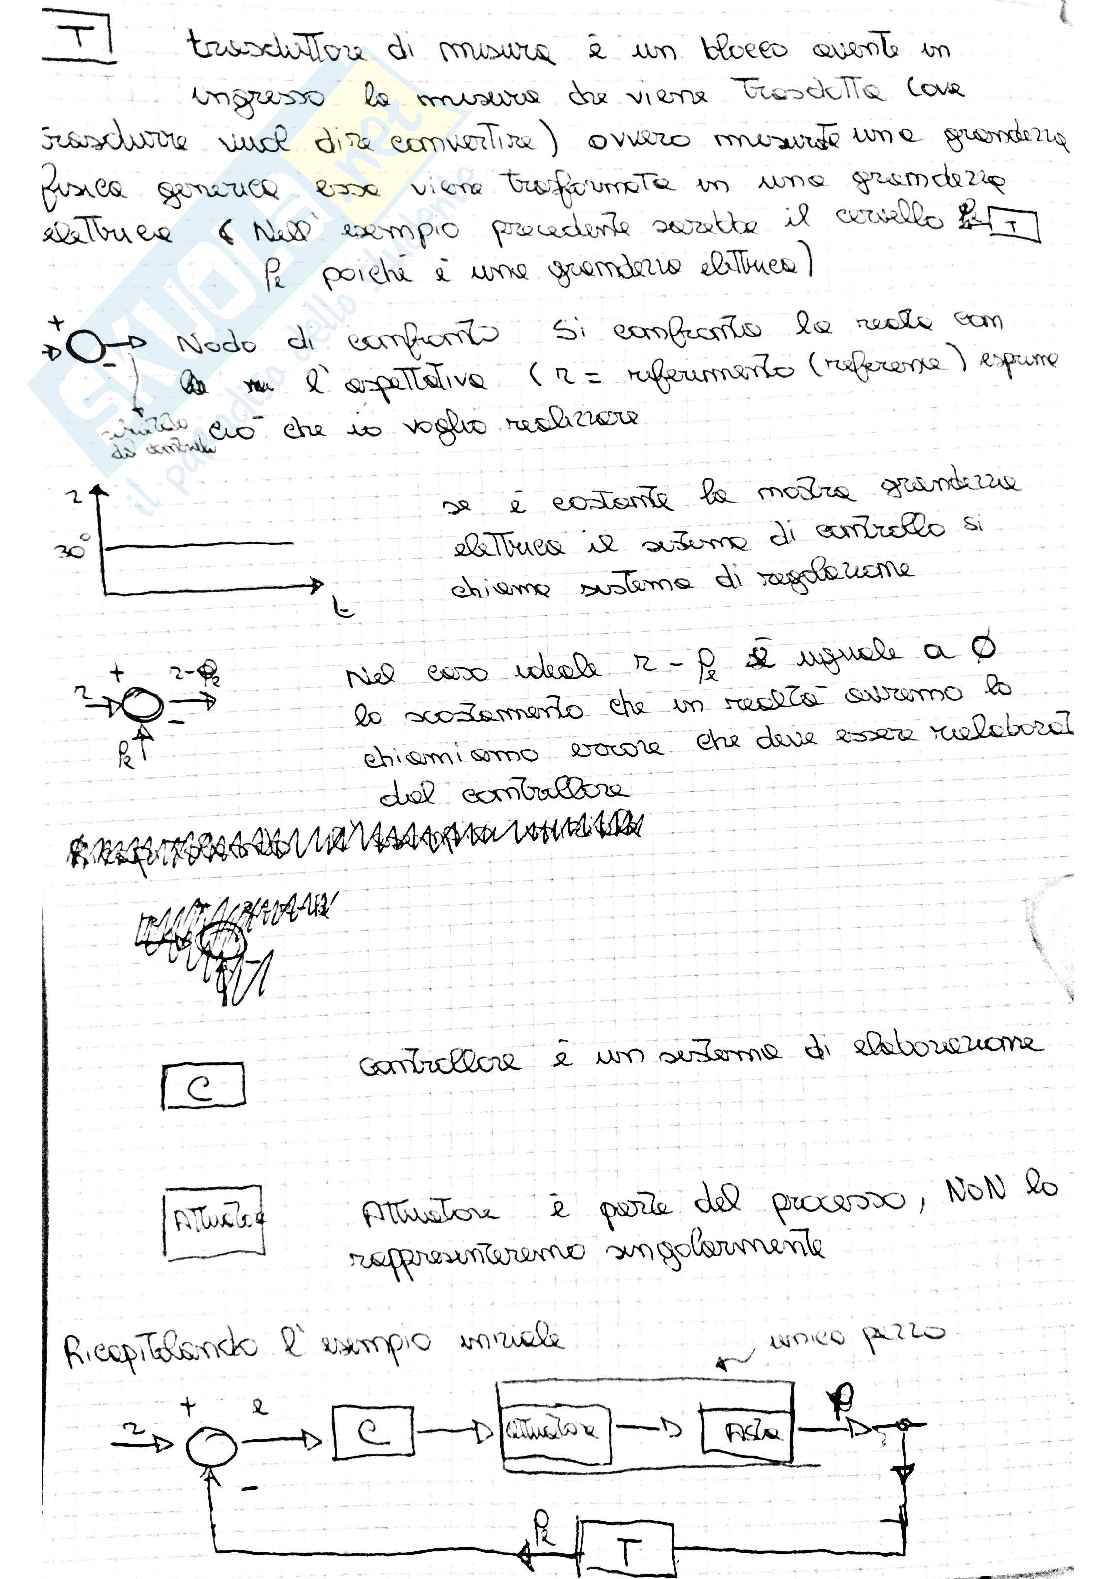 T
trasduttore di misura è un blocco avente in
ingresso la misura che viene trasdotta (ove
trasdurre vuol dire convertire) ovvero misurata una grandezza
fisica generica essa viene trasformata in una grandezza
elettrica (Nell'esempio precedente sarebbe il cervello T
poiché è una grandezza elettrica)
+
-
Nodo di confronto Si confronta la realtà con
l'aspettativa (r = riferimento (reference) esprime
ciò che io voglio realizzare
da controllo
SKUOLA.net
il paradiso dello studente
r
30°
t
se è costante la nostra grandezza
elettrica il sistema di controllo si
chiama sistema di regolazione
+
r
-
Nel caso ideale r - è uguale a 0
lo scostamento che in realtà avremo lo
chiamiamo errore che deve essere rielaborat
dal controllore
C
controllore è un sistema di elaborazione
Attuatore
Attuatore è parte del processo, NON lo
rappresenteremo singolarmente
Ricapitolando l'esempio iniziale
unico pezzo
+
r
e
C
attuatore
Asta
-
T